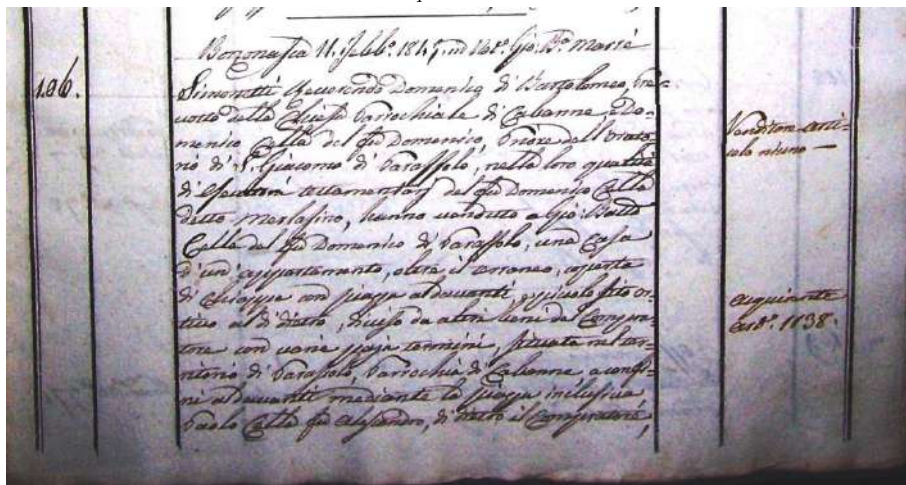 Bononasca 11. Febb.º 1815, in Not.º Gio. B.ª Marrè
196.
Simonetti Reverendo Domenico di Bartolomeo, Pre-
vosto della Chiesa Parrochiale di Cabanne, e Do-
menico Cella del fu Domenico, Priore dell'Orato-
rio di S. Giacomo di Parazzolo, nella loro qualità
di Esecutori testamentarj del fu Domenico Cella
detto Merlasino, hanno venduto a Gio: Batta
Cella del fu Domenico di Parazzolo, una Casa
d'un appartamento, oltre il terraneo, coperta
di chiappe con piazza al davanti, e piccolo sito or-
tivo al di dietro, diviso da altri beni del Compra-
tore con varie paja termini, situata nel ter-
ritorio di Parazzolo, Parrochia di Cabanne, a confi-
ni al davanti mediante la piazza inclusiva
Paolo Cella fu Alessandro, di dietro il Compratore,
Venditore arti-
colo niuno —
Acquirente
Art.º 1138.